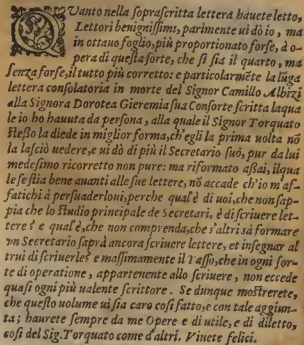 QVanto nella soprascritta lettera hauete letto,
Lettori benignissimi, parimente ui dò io, ma
in ottauo foglio, più proportionato forse, à o-
pera di questa sorte, che si sia il quarto, ma
senza forse, il tutto più corretto: e particolarmẽte la lũga
lettera consolatoria in morte del Signor Camillo Albizi
alla Signora Dorotea Gieremia sua Consorte scritta laqua
le io ho hauuta da persona, alla quale il Signor Torquato
stesso la diede in miglior forma, ch'egli la prima uolta nõ
la lasciò uedere, e ui dò di più il Secretario suo, pur da lui
medesimo ricorretto non pure: ma riformato assai, ilqua
le se stia bene auanti alle sue lettere, nõ accade ch'io m'af-
fatichi à persuaderloui, perche qual'è di uoi, che non sap-
pia che lo studio principale de Secretari, è di scriuere let-
tere? e qual'è, che non comprenda, che s'altri sà formare
vn Secretario saprà ancora scriuere lettere, et insegnar al
trui di scriuerle? e massimamente il Tasso, che in ogni sor-
te di operatione, appartenente allo scriuere, non eccede
quasi ogni più ualente scrittore. Se dunque mostrerete,
che questo volume ui sia caro così fatto, e con tale aggiun-
ta; haurete sempre da me Opere e di utile, e di diletto,
così del Sig. Torquato come d'altri. Viuete felici.